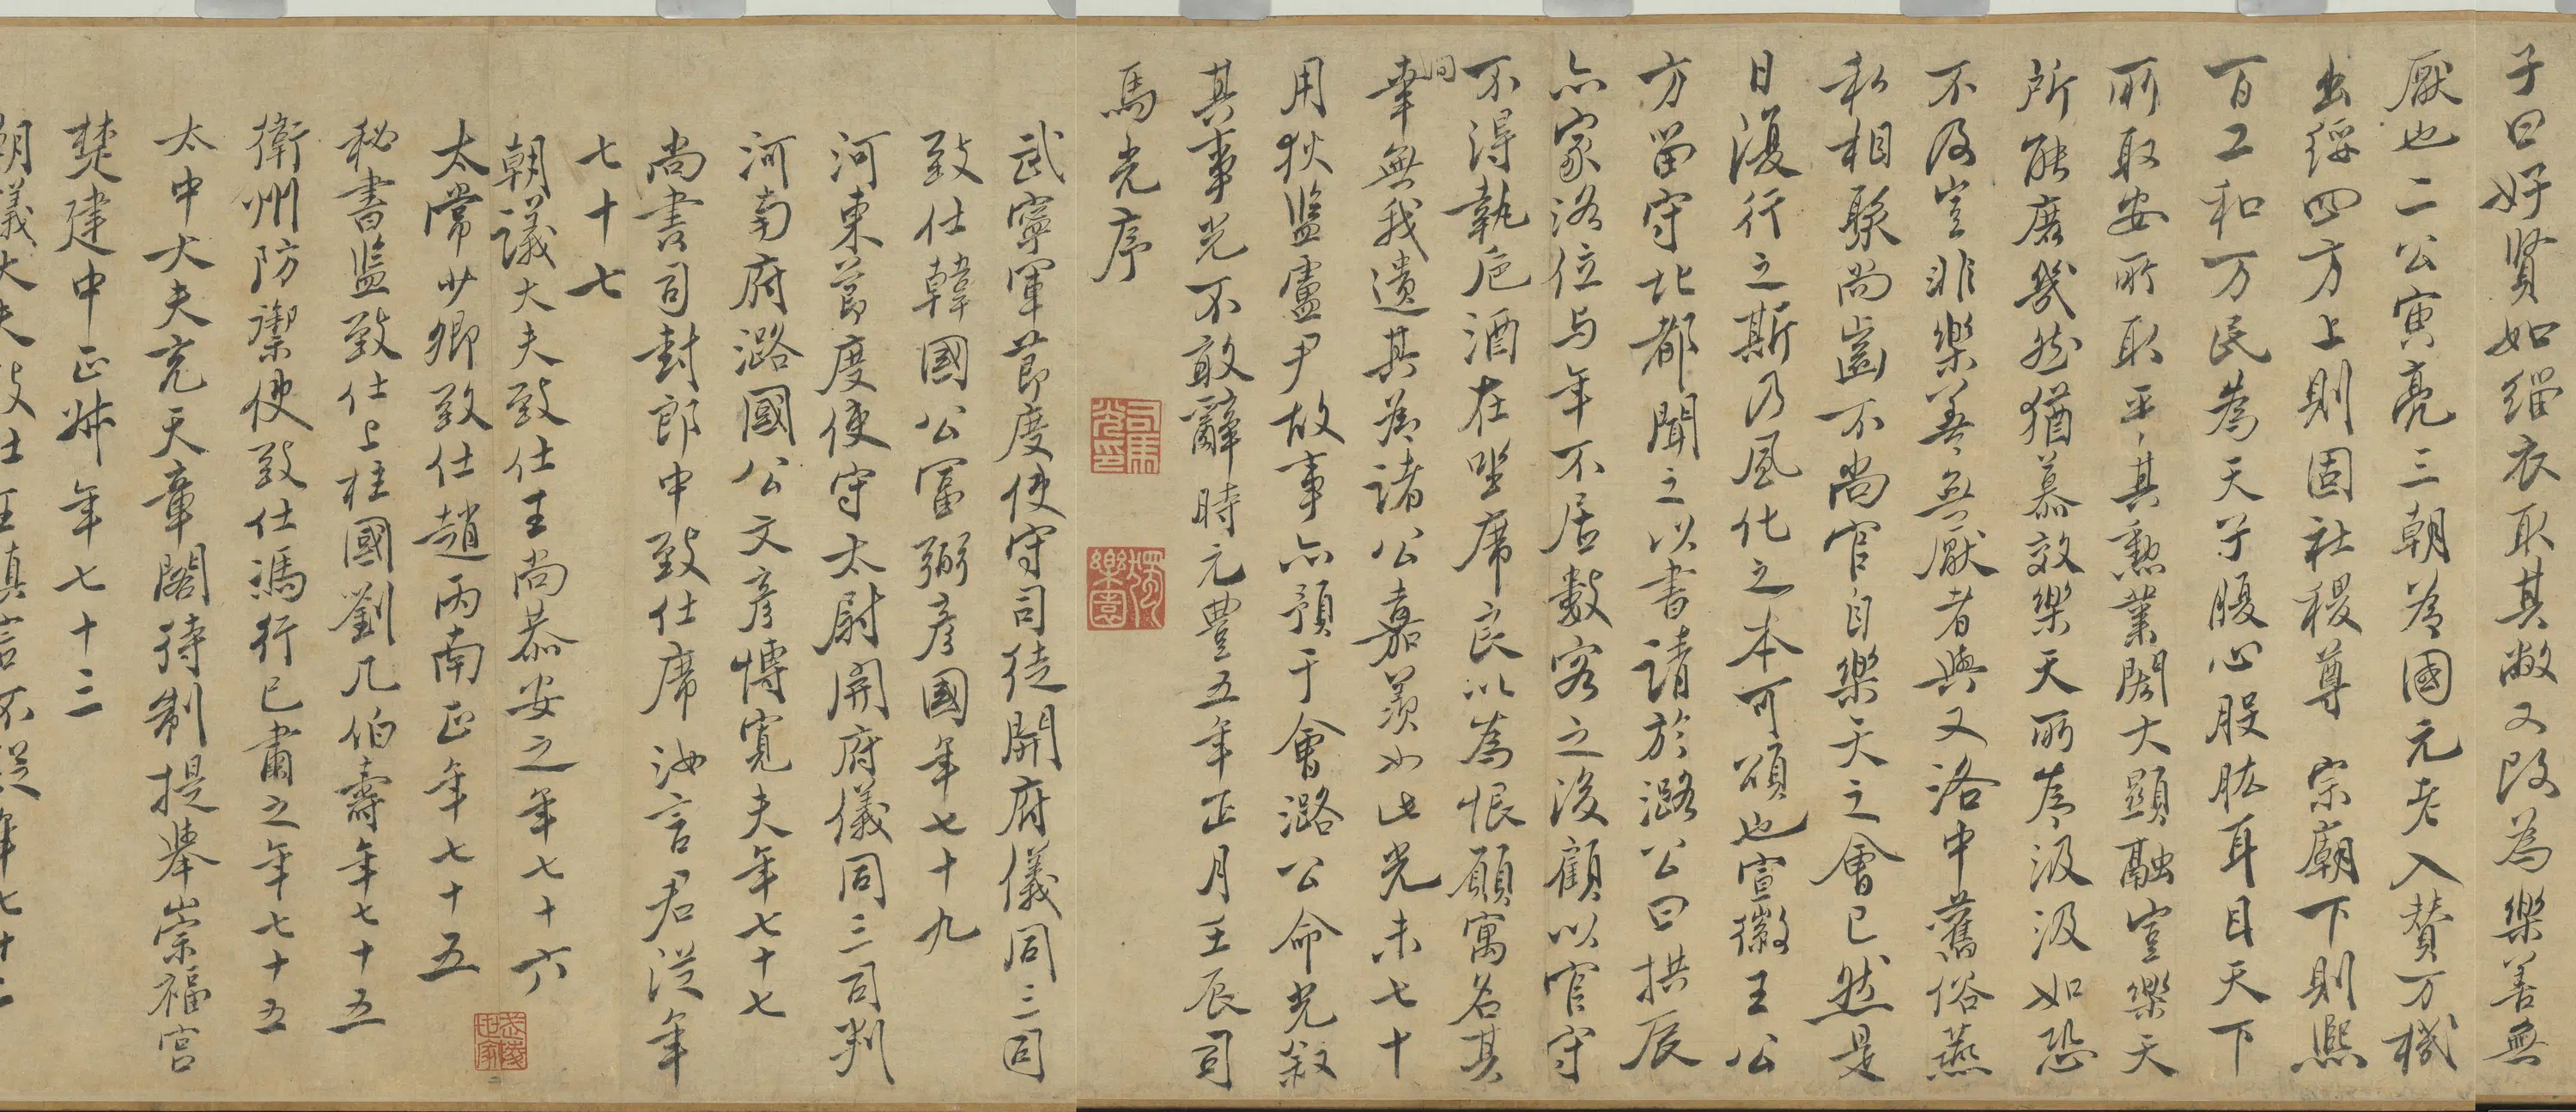 子曰好賢如緇衣取其敝又改為樂善無
厭也二公寅亮三朝為國元老入贊万機
出綏四方上則固社稷尊宗廟下則熙
百工和万民為天子腹心股肱耳目天下
所取安所取平其勲業閎大顯融豈樂天
所能庶幾然猶慕效樂天所為汲汲如恐
不及豈非樂善無厭者與又洛中舊俗燕
私相聚尚齒不尚官自樂天之會已然是
日復行之斯乃風化之本可頌也宣徽王公
方留守北都聞之以書請於潞公曰拱辰
亦家洛位与年不居數客之後顧以官守
不得執卮酒在坐席良以為恨願寓名其
間幸無我遺其為諸公嘉羨如此光未七十
用狄監盧尹故事亦預于會潞公命光叙
其事光不敢辭時元豐五年正月壬辰司
馬光序
司馬光印
獨樂園
武寧軍節度使守司徒開府儀同三司
致仕韓國公富弼彥國年七十九
河東節度使守太尉開府儀同三司判
河南府潞國公文彥博寬夫年七十七
尚書司封郎中致仕席汝言君從年
七十七
朝議大夫致仕王尚恭安之年七十六
太常少卿致仕趙丙南正年七十五
秘書監致仕上柱國劉几伯壽年七十五
衛州防禦使致仕馮行已肅之年七十五
太中大夫充天章閣待制提舉崇福宮
楚建中正叔年七十三
朝議大夫致仕王慎言不疑年七十二